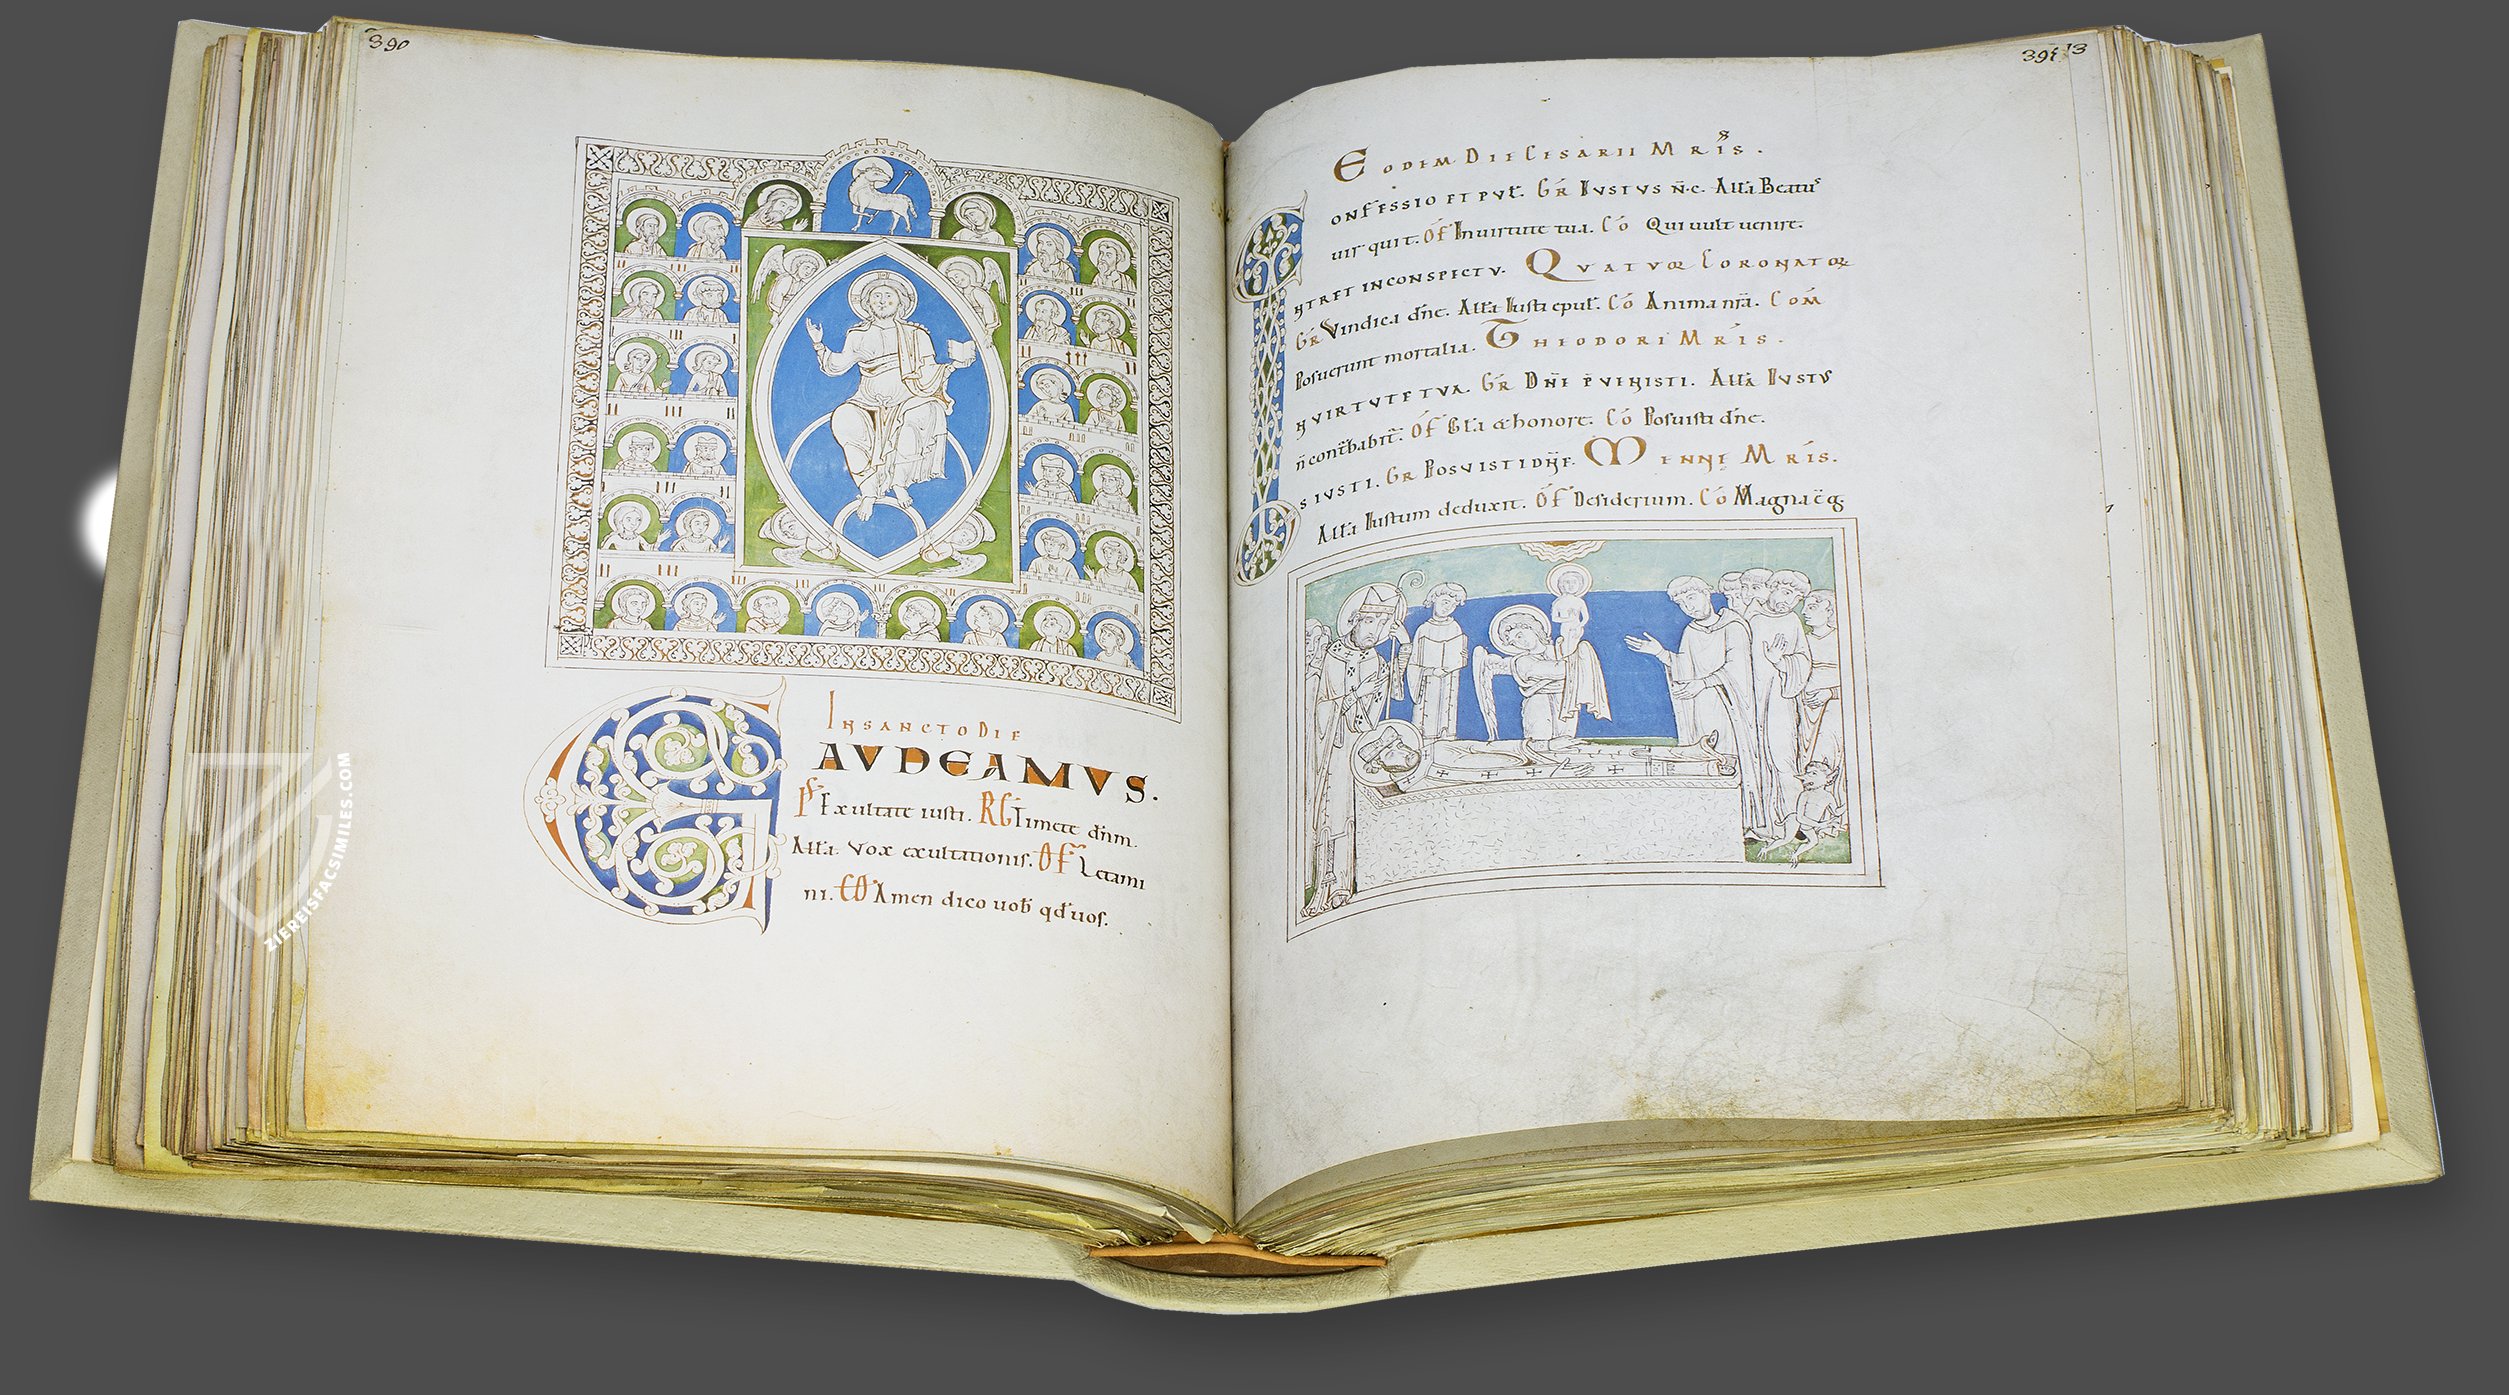 390
IN SANCTO DIE
GAVDEAMVS.
Ps Exultate iusti. RG Timete dnm.
Alla. Vox exultationis. Of Letami
ni. CO Amen dico uob qd uos.
391
EODEM DIE CESARII MRIS.
CONFESSIO ET PVL. GR IVSTVS N C. Alla Beatus
uir qui t. Of In uirtute tua. Co Qui uult uenire.
INTRET IN CONSPECTV. QVATVOR CORONATOR
GR Vindica dne. Alla Iusti epul. Co Anima nra. COM
Posuerunt mortalia. THEODORI MRIS.
IN VIRTVTE TVA. GR DNE PVENISTI. Alla IVSTVS
n conthabit. Of Gla & honore. Co Posuisti dne.
OS IVSTI. GR POSVISTI DNE. MENNE MRIS.
Alla Iustum deduxit. Of Desiderium. Co Magna e g.
ZIEREISFACSIMILES.COM